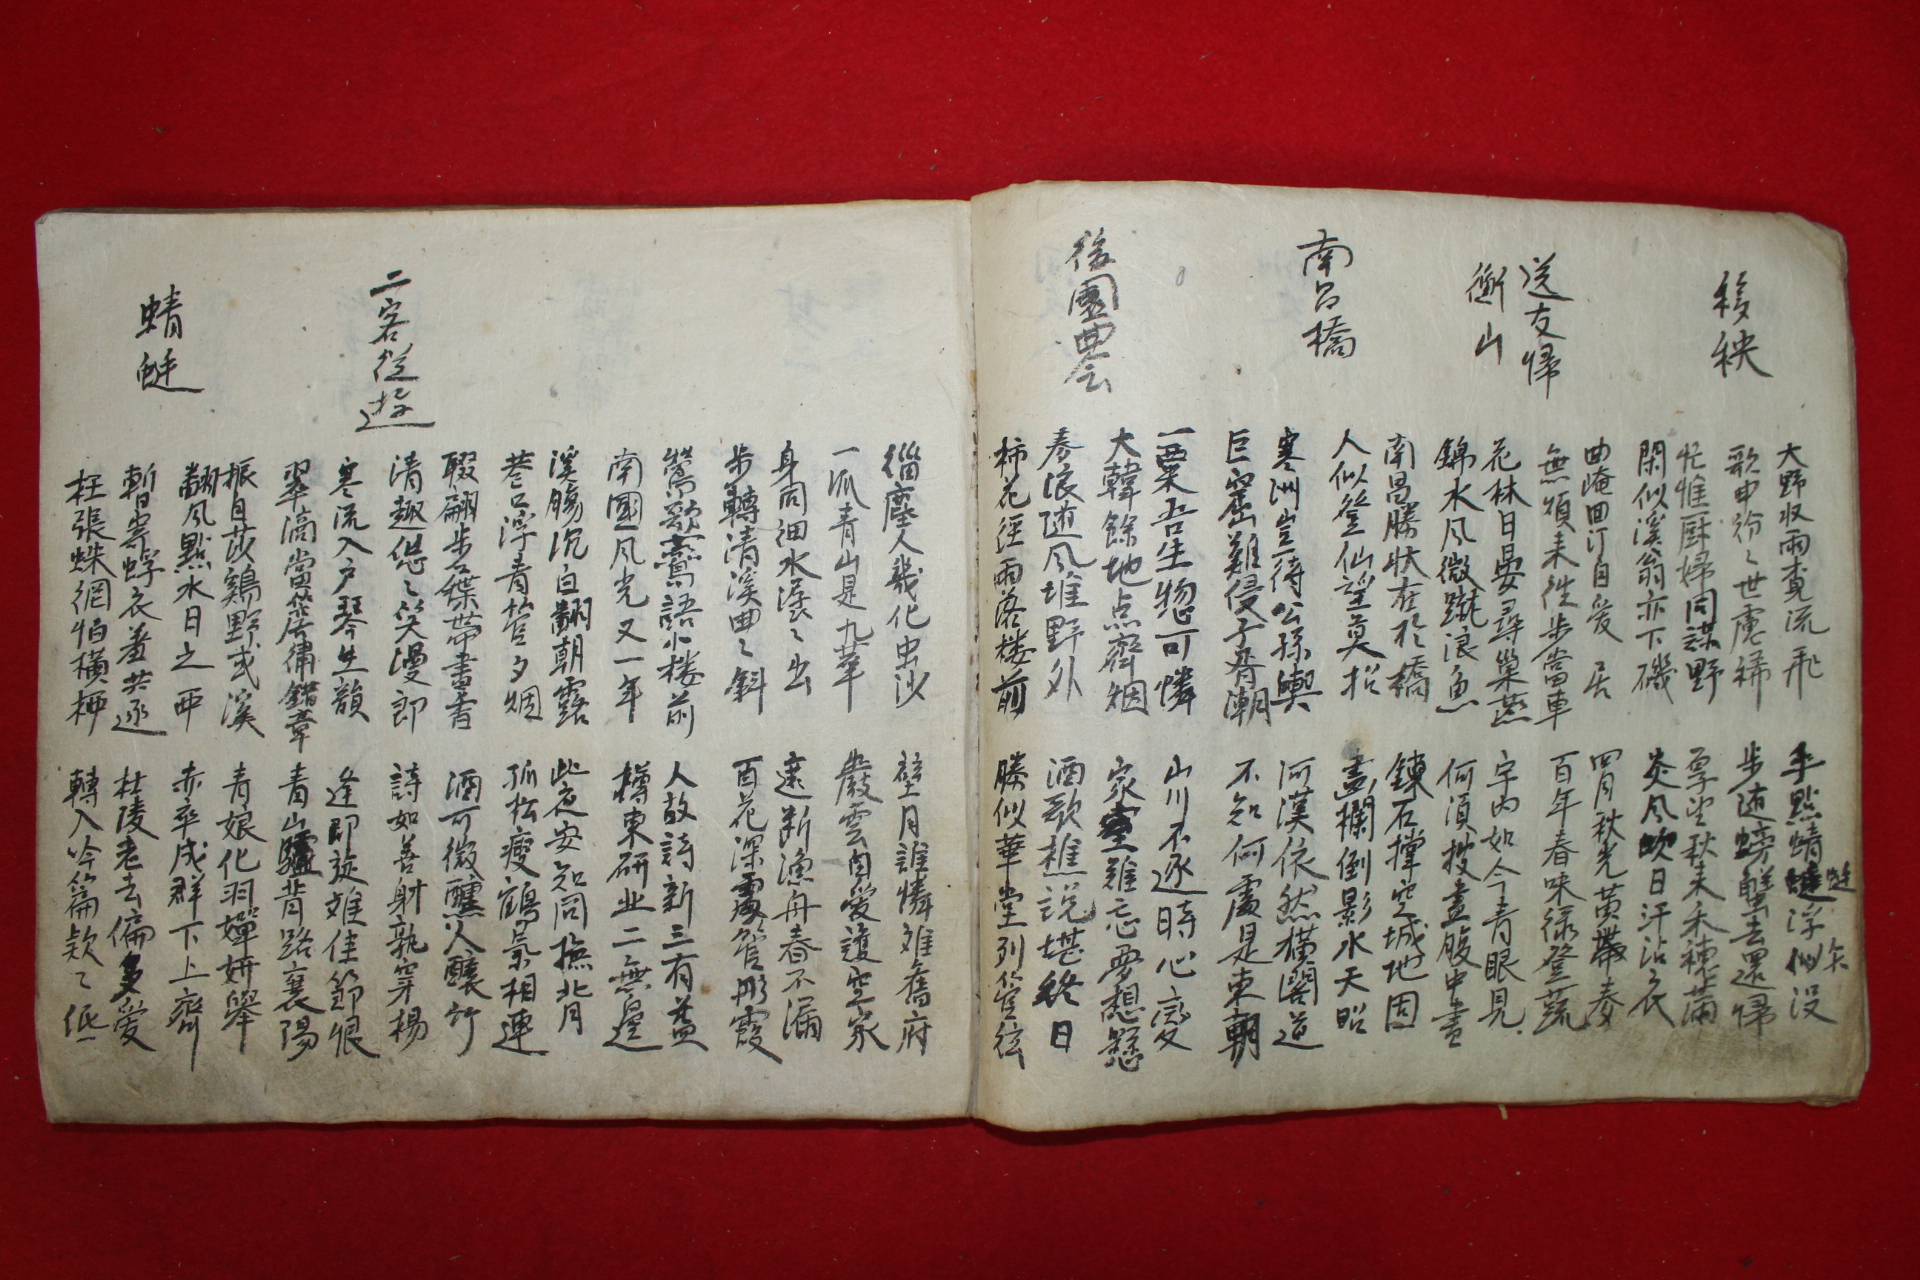 移秧
大野收雨責流飛
手點蜻蜓浮似沒
歌中紛々世慮稀
步随螃蟹去還帰
忙惟厨婦同謀野
享望秋来禾穗蒲
閑似溪翁亦下磯
炎風吹日汗沾衣
送友帰
衡山
曲淹田汀自爱居
四月秋光黄帶麥
無煩来往步當車
百年春味緑登蔬
花林日晏尋巢燕
宇内如今青眼見
錦水風微蹴浪魚
何須搜盡腹中書
南昌橋
南昌勝狀在於橋
鍊石撑空城地固
人似登仙望莫招
畵欄倒影水天昭
寒洲豈待公孫輿
河漢依然橫閣道
巨窟難侵子胥潮
不知何處是東朝
後園曲会
一粟吾生惣可憐
山川不逐時心變
大韓餘地点齊烟
家室難忘夢想懸
麥浪随風堆野外
酒歌樵說堪終日
柿花徑雨落楼前
勝似華堂列管絃
緇塵人幾化虫沙
壁月誰憐难舊府
一派青山是九華
巖雲自愛護空家
身同細水潺々出
遠斷漁舟春不漏
步轉清溪曲々斜
百花深處管彤霞
二客從遊
鶯歌鷰語小楼前
人故詩新三有益
南國風光又一年
樽東研北二無邊
溪膓沉白翻朝露
此夜安知同撫北月
巷口浮青苔夕烟
孤松瘦鶴氣相連
輟翩步屧帶書香
酒可微醺人釀竹
清趣偲々笑漫郎
詩如善射孰穿楊
寒流入户琴生韻
逢即旋难佳節恨
翠滴當筵繡錯章
青山驢背路襄陽
蜻蜓
振自莎鷄野或溪
青娘化羽嬋姸舉
翻風點水日之西
赤卒成群下上齊
暫寄蜉衣羞共逐
杜陵老去偏多爱
枉張蛛網怕橫栖
轉入吟篇欵々低